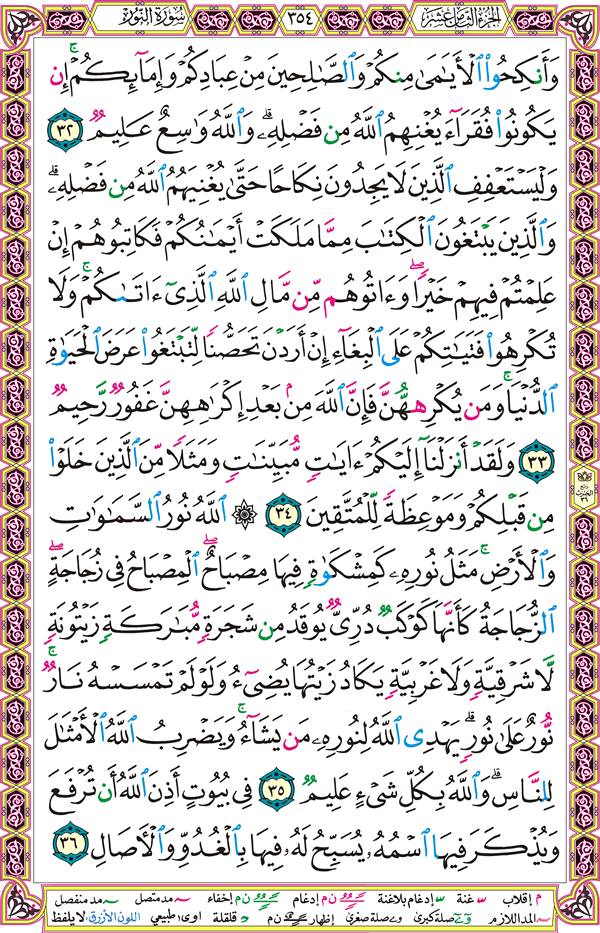 الجزء الثامن عشر ٣٥٤ سورة النور
وَأَنكِحُوا۟ ٱلْأَيَـٰمَىٰ مِنكُمْ وَٱلصَّـٰلِحِينَ مِنْ عِبَادِكُمْ وَإِمَآئِكُمْ ۚ إِن
يَكُونُوا۟ فُقَرَآءَ يُغْنِهِمُ ٱللَّهُ مِن فَضْلِهِۦ ۗ وَٱللَّهُ وَٰسِعٌ عَلِيمٌ ٣٢
وَلْيَسْتَعْفِفِ ٱلَّذِينَ لَا يَجِدُونَ نِكَاحًا حَتَّىٰ يُغْنِيَهُمُ ٱللَّهُ مِن فَضْلِهِۦ ۗ
وَٱلَّذِينَ يَبْتَغُونَ ٱلْكِتَـٰبَ مِمَّا مَلَكَتْ أَيْمَـٰنُكُمْ فَكَاتِبُوهُمْ إِنْ
عَلِمْتُمْ فِيهِمْ خَيْرًا ۖ وَءَاتُوهُم مِّن مَّالِ ٱللَّهِ ٱلَّذِىٓ ءَاتَىٰكُمْ ۚ وَلَا
تُكْرِهُوا۟ فَتَيَـٰتِكُمْ عَلَى ٱلْبِغَآءِ إِنْ أَرَدْنَ تَحَصُّنًا لِّتَبْتَغُوا۟ عَرَضَ ٱلْحَيَوٰةِ
ٱلدُّنْيَا ۚ وَمَن يُكْرِههُّنَّ فَإِنَّ ٱللَّهَ مِنۢ بَعْدِ إِكْرَٰهِهِنَّ غَفُورٌ رَّحِيمٌ
٣٣ وَلَقَدْ أَنزَلْنَآ إِلَيْكُمْ ءَايَـٰتٍ مُّبَيِّنَـٰتٍ وَمَثَلًا مِّنَ ٱلَّذِينَ خَلَوْا۟
مِن قَبْلِكُمْ وَمَوْعِظَةً لِّلْمُتَّقِينَ ٣٤ ۞ ٱللَّهُ نُورُ ٱلسَّمَـٰوَٰتِ
وَٱلْأَرْضِ ۚ مَثَلُ نُورِهِۦ كَمِشْكَوٰةٍ فِيهَا مِصْبَاحٌ ۖ ٱلْمِصْبَاحُ فِى زُجَاجَةٍ ۖ
ٱلزُّجَاجَةُ كَأَنَّهَا كَوْكَبٌ دُرِّىٌّ يُوقَدُ مِن شَجَرَةٍ مُّبَـٰرَكَةٍ زَيْتُونَةٍ
لَّا شَرْقِيَّةٍ وَلَا غَرْبِيَّةٍ يَكَادُ زَيْتُهَا يُضِىٓءُ وَلَوْ لَمْ تَمْسَسْهُ نَارٌ ۚ
نُّورٌ عَلَىٰ نُورٍ ۗ يَهْدِى ٱللَّهُ لِنُورِهِۦ مَن يَشَآءُ ۚ وَيَضْرِبُ ٱللَّهُ ٱلْأَمْثَـٰلَ
لِلنَّاسِ ۗ وَٱللَّهُ بِكُلِّ شَىْءٍ عَلِيمٌ ٣٥ فِى بُيُوتٍ أَذِنَ ٱللَّهُ أَن تُرْفَعَ
وَيُذْكَرَ فِيهَا ٱسْمُهُۥ يُسَبِّحُ لَهُۥ فِيهَا بِٱلْغُدُوِّ وَٱلْـَٔاصَالِ ٣٦
م إقلاب غنة إدغام بلاغنة ن م إدغام ن م إخفاء مد متصل مد منفصل
المد اللازم صلة كبرى صلة صغرى إظهار ن م قلقلة اوى: طبيعي اللون الأزرق: لا يلفظ